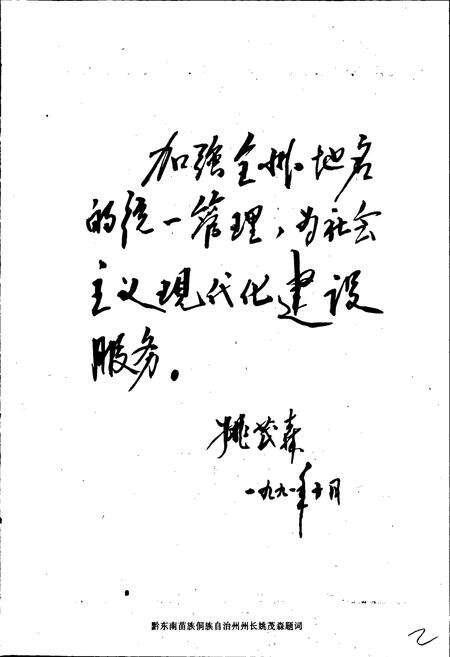 加强全州地名
的统一管理，为社会
主义现代化建设
服务。
姚茂森
一九九一年十月
黔东南苗族侗族自治州州长姚茂森题词
2